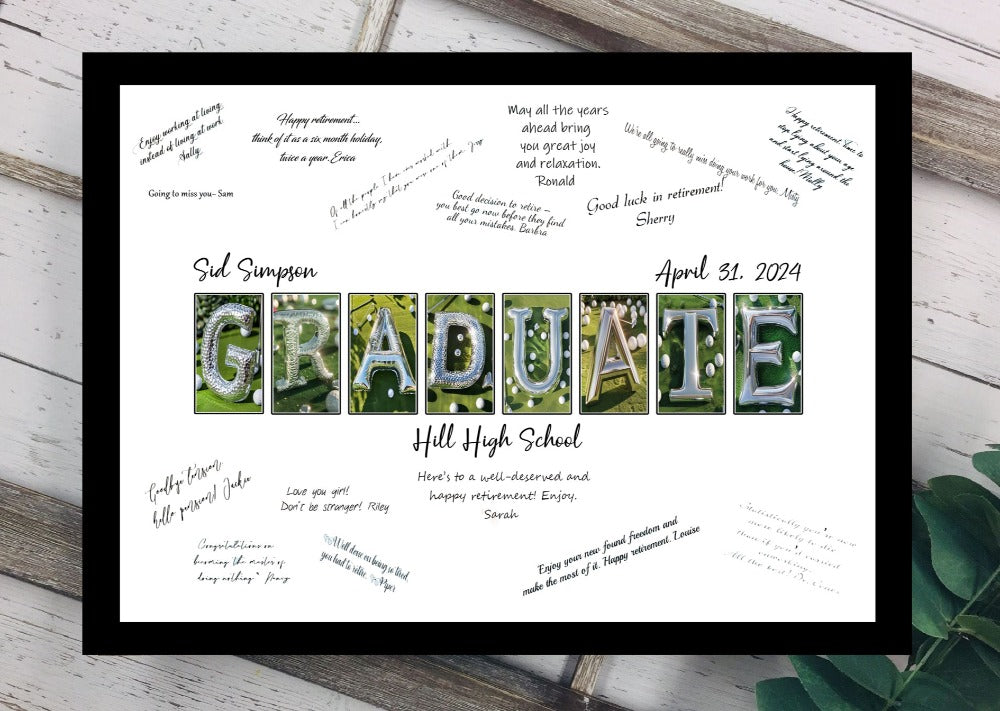 Enjoy working at living
instead of living at work.
Sally
Happy retirement...
think of it as a six month holiday,
twice a year. Erica
Of all the people I have ever worked with
I can honestly say that you are one of them.
May all the years
ahead bring
you great joy
and relaxation.
Ronald
We're all going to really miss doing your work for you. Misty
Happy retirement. Time to
stop lying about your age
and start lying around the
house! Molly
Going to miss you- Sam
Good decision to retire –
you best go now before they find
all your mistakes. Barbra
Good luck in retirement!
Sherry
Sid Simpson
April 31. 2024
GRADUATE
Hill High School
Goodbye tension,
hello pension! Jackie
Love you girl!
Don't be stranger! Riley
Here's to a well-deserved and
happy retirement! Enjoy.
Sarah
Congratulations on
becoming the master of
doing nothing"
A Well done on being so tired,
you had to retire. Piper
Enjoy your new found freedom and
make the most of it. Happy retirement. Louise
Statistically you're now
more likely to die
than if you'd carried
All the best!